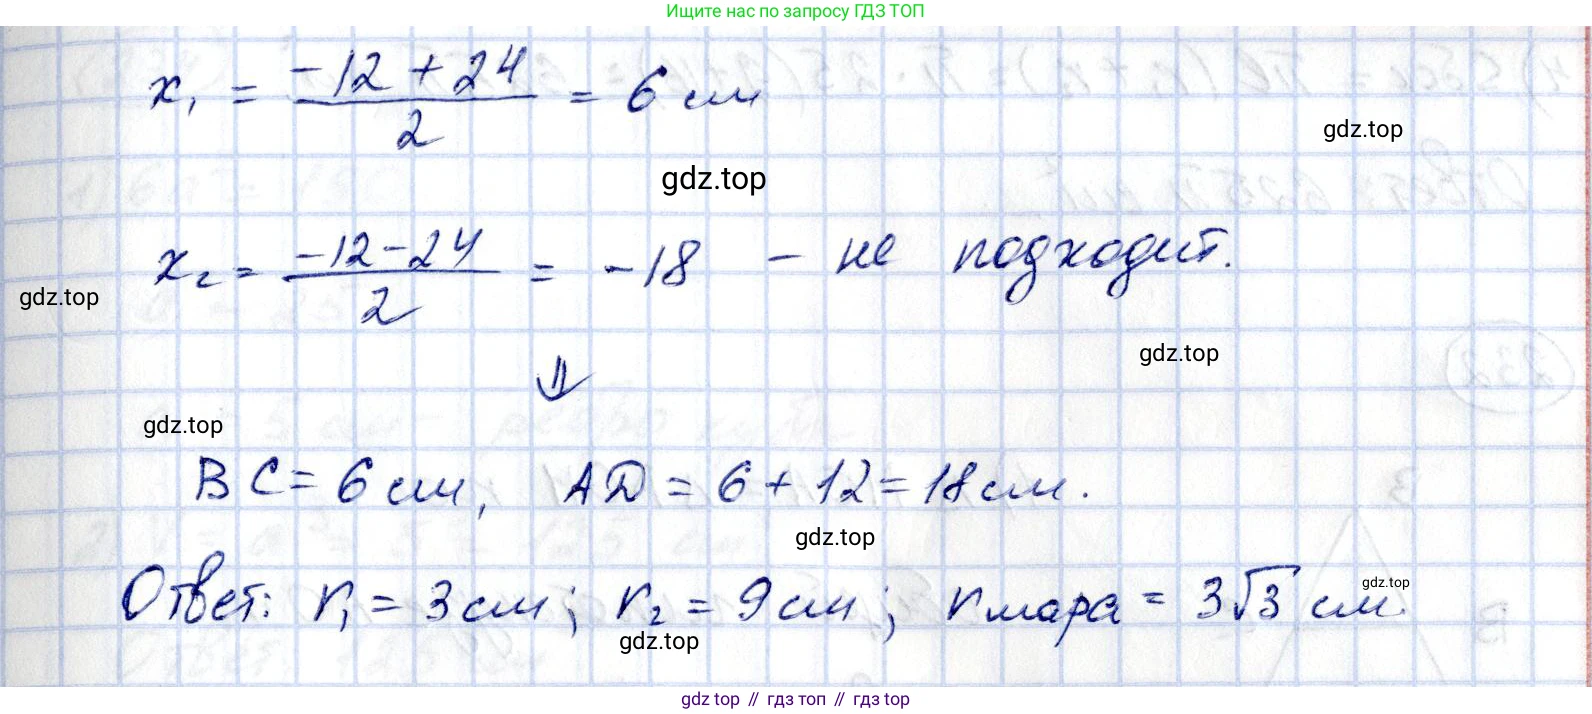 Ищите нас по запросу ГДЗ ТОП
x₁ = (-12 + 24)/2 = 6 см
gdz.top
gdz.top
x₂ = (-12-24)/2 = -18 - не подходит.
gdz.top
gdz.top
⇓
gdz.top
232
BC = 6 см, AD = 6 + 12 = 18 см.
gdz.top
Ответ: r₁ = 3 см; r₂ = 9 см; r шара = 3√3 см.
gdz.top
gdz.top
gdz top // гдз топ // гдз top